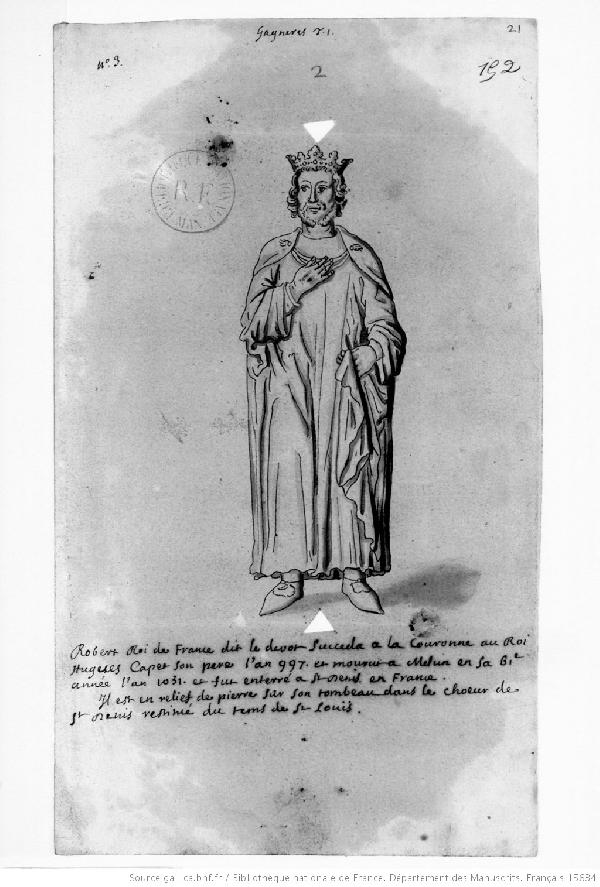 Gagneres T. 1.
21
N.º 3.
2
192
R.F.
Robert Roi de France dit le devot Succeda a la Couronne au Roi
Hugues Capet son pere l'an 997. et mourut a Melun en sa 61e
année l'an 1031. et fut enterré a St Denis en France.
Il est en relief de pierre sur son tombeau dans le choeur de
St Denis restitué du tems de St Louis.
Source gallica.bnf.fr / Bibliothèque nationale de France. Département des Manuscrits. Français 15634